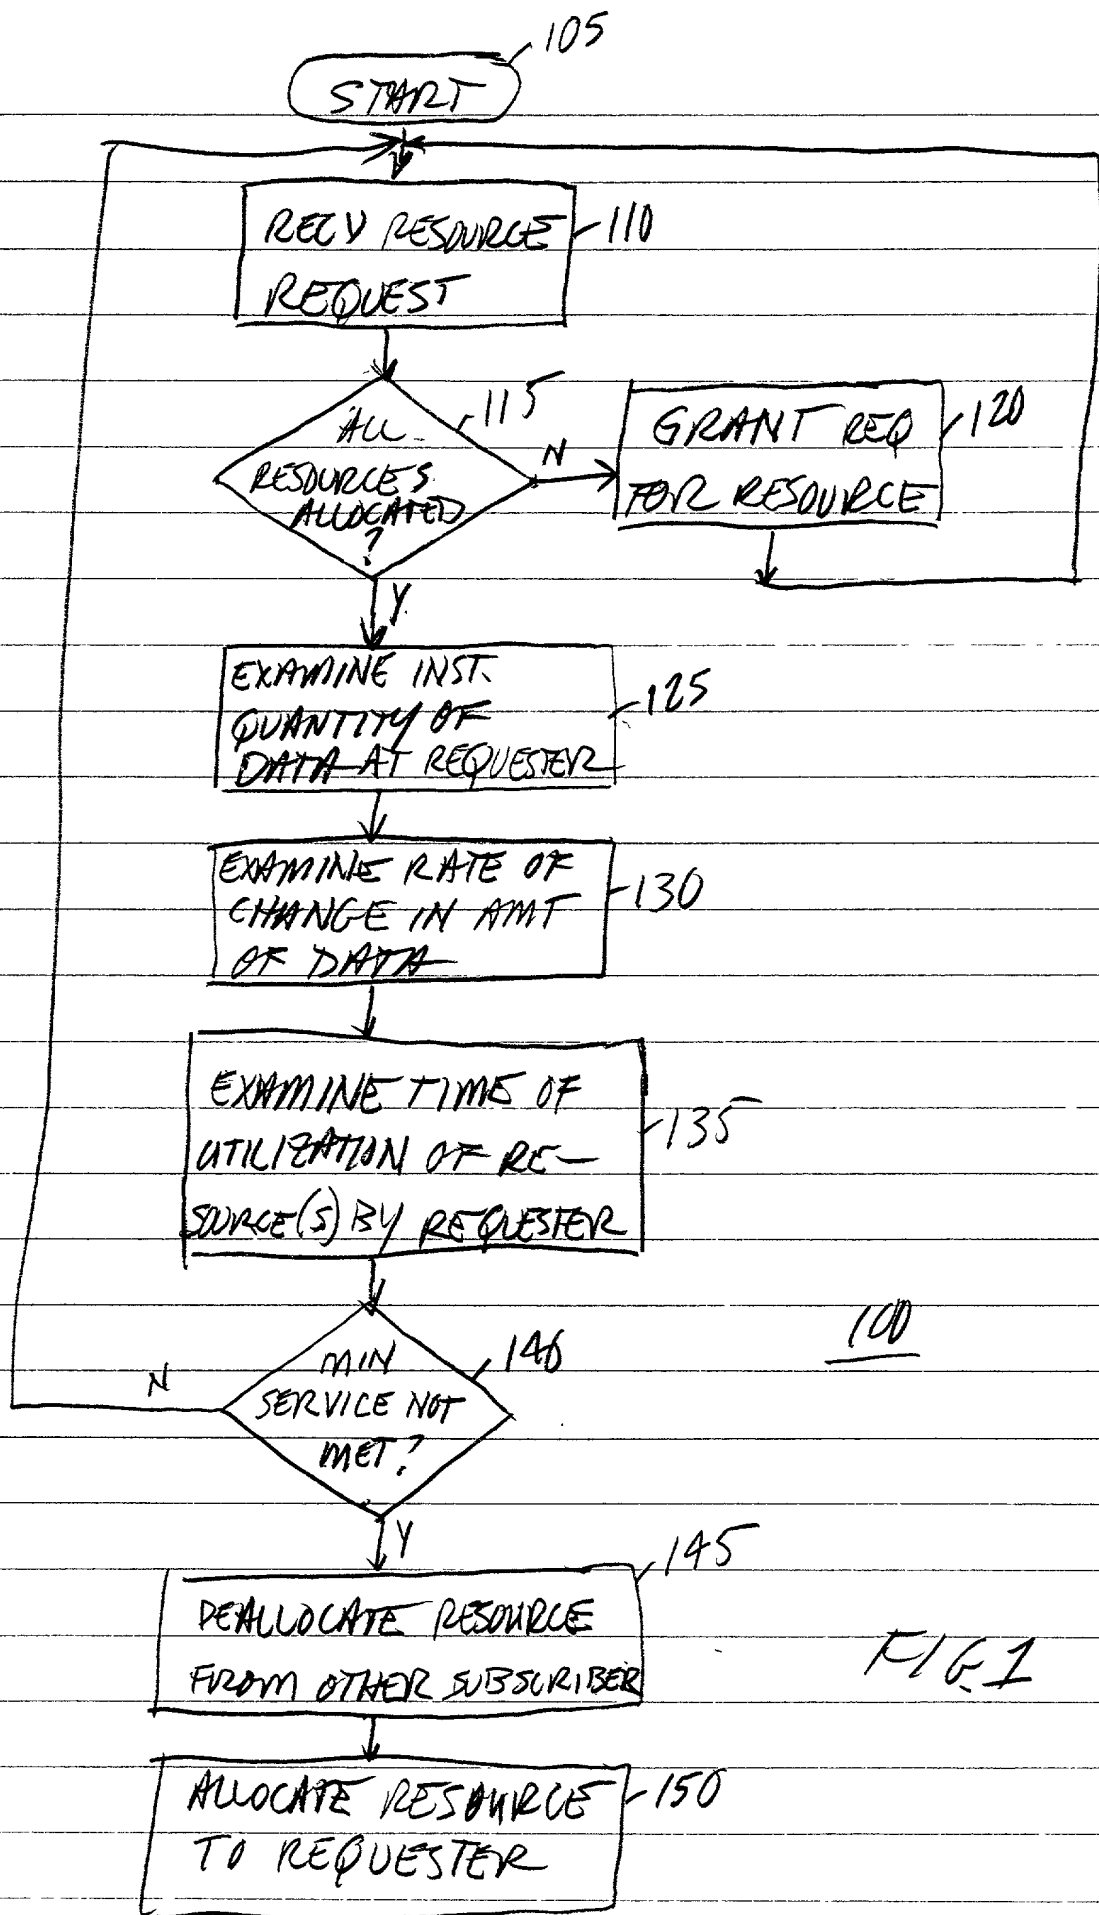 105
START
RECV RESOURCE
REQUEST
110
ALL
RESOURCES
ALLOCATED
?
115
N
GRANT REQ
FOR RESOURCE
120
Y
EXAMINE INST.
QUANTITY OF
DATA AT REQUESTER
125
EXAMINE RATE OF
CHANGE IN AMT
OF DATA
130
EXAMINE TIME OF
UTILIZATION OF RE-
SOURCE(S) BY REQUESTER
135
100
MIN
SERVICE NOT
MET?
140
N
Y
145
DEALLOCATE RESOURCE
FROM OTHER SUBSCRIBER
FIG. 1
ALLOCATE RESOURCE
TO REQUESTER
150